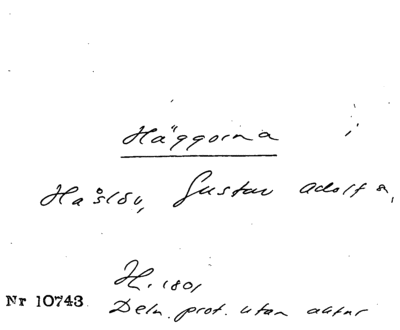 Häggorna
Håslöv, Gustav Adolf s,
H. 1801
Nr 10743
Deln. prot. utan aktnr